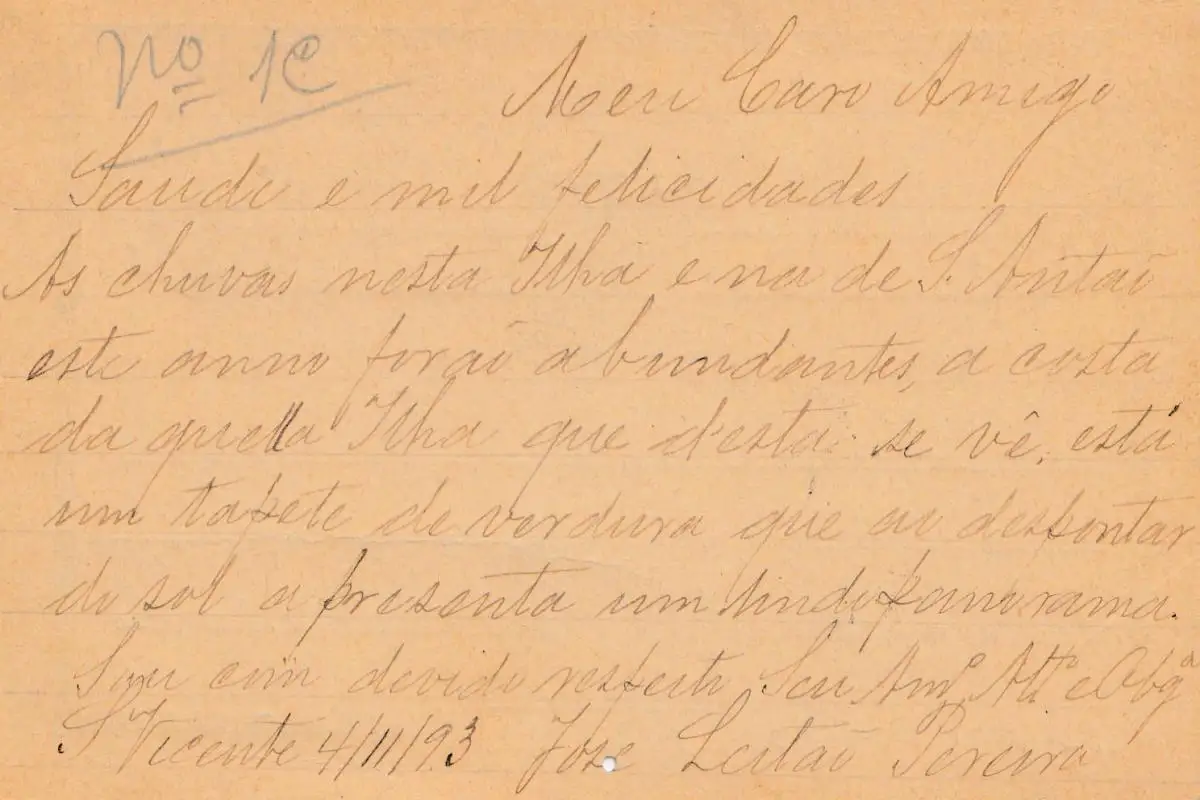 Nº 1C
Meu Caro Amigo
Saude e mil felicidades
As chuvas nesta Ilha e na de S. Antão
este anno forão abundantes, a costa
da quella Ilha que d'esta se vê, está
um tapete de verdura que ao despontar
do sol apresenta um lindo panorama.
Sou com devido respeito Seu Amº Attº e Obgº
S Vicente 4/11/93 José Leitão Pereira